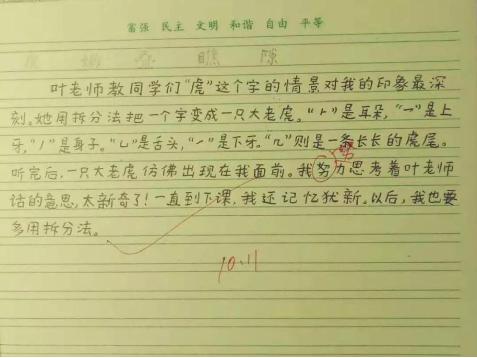 富强 民主 文明 和谐 自由 平等
瞧 隙
叶老师教同学们“虎”这个字的情景对我的印象最深
刻。她用拆分法把一个字变成一只大老虎。“⺊”是耳朵,“乛”是上
牙,“丿”是身子。“乚”是舌头,“㇀”是下牙。“几”则是一条长长的虎尾。
听完后,一只大老虎仿佛出现在我面前。我努力思考着叶老师
话的意思,太新奇了!一直到下课,我还记忆犹新。以后,我也要
多用拆分法。
10.11